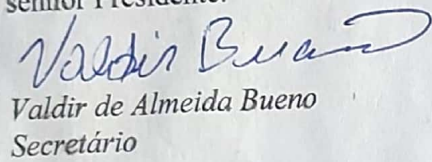 senhor Presidente.
Valdir Bueno
Valdir de Almeida Bueno
Secretário